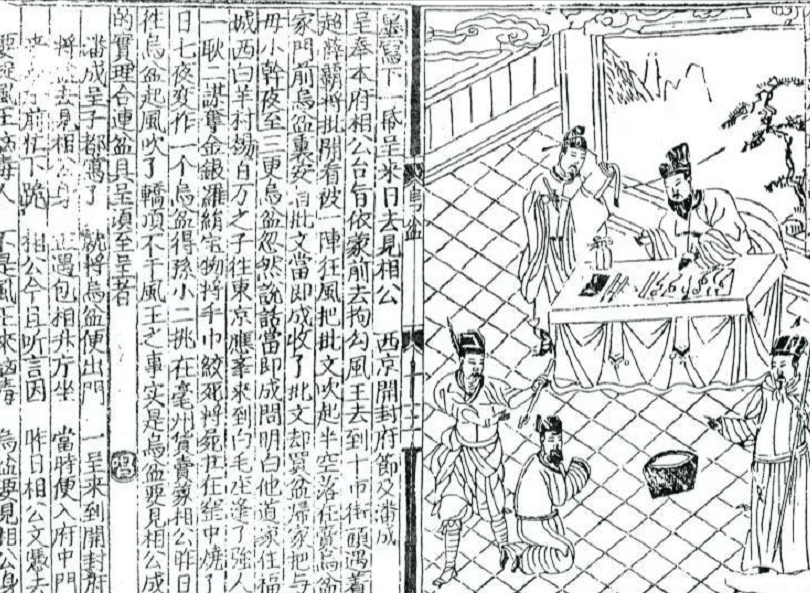 墨寫下一帋呈來日去見相公　西京開封府節及潘成
呈奉本府相公台旨依蒙前去拘勾風王去到十市街頭遇着
將批開看被一陣狂風把批文吹起半空落在賣烏盆
家門前烏盆裏安批文當即成收了批文却買盆歸家把与
母小幹夜至三更烏盆忽然說話當即成問明白他道家住福
城西白羊村楊百万之子往東京應舉來到白毛店逢了強人
一耿二謀奪金銀羅絹宝物將手巾絞死將死在窑中燒了
日七夜変作一个烏盆得孫小二挑在亳州貨賣蒙相公昨日
往烏盆起風吹了轎頂不干風王之事实是烏盆要見相公成
的實理合連盆具呈須至呈者
潘成呈子都寫了　就將烏盆便出門　一呈來到開封府
將去見相公　正遇包相升厅坐　當時便入府中門
前忙下跪　相公今且听言因　昨日相公文憑去
要捉風王毒人　不是風王來毒　烏盆要見相公身